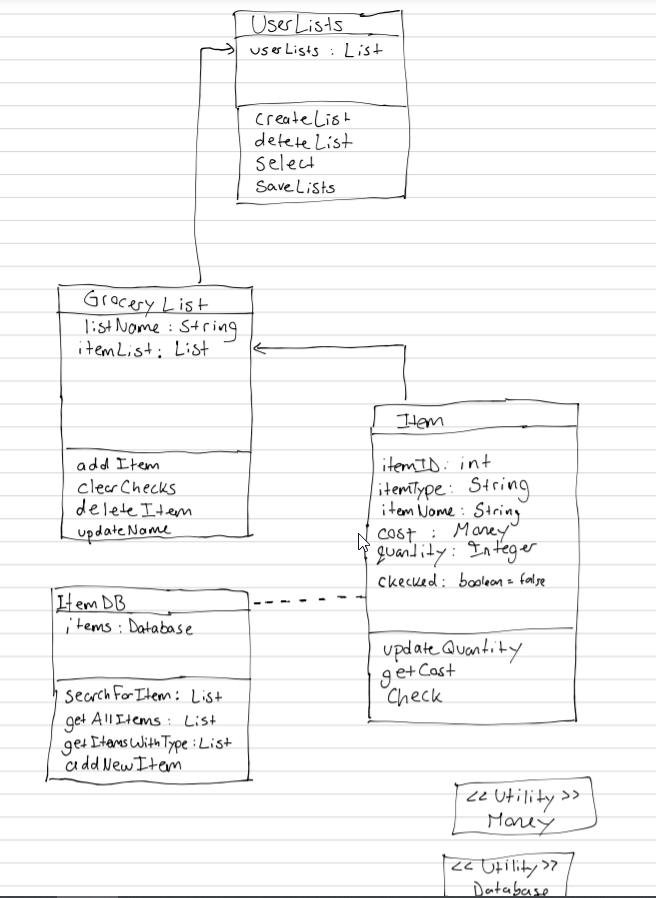 UserLists
userLists : List
createList
deleteList
select
saveLists
Grocery List
listName : String
itemList : List
add Item
clearChecks
deleteItem
updateName
Item
itemID : int
itemType : String
itemName : String
cost : Money
quantity : Integer
ckecked : boolean = false
updateQuantity
getCost
Check
ItemDB
items : Database
searchForItem : List
getAllItems : List
getItemsWithType : List
addNewItem
<< Utility >>
Money
<< Utility >>
Database